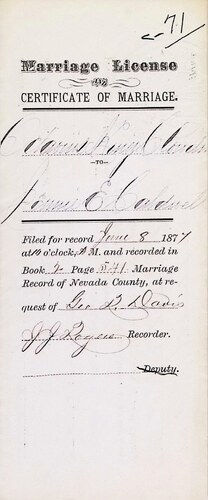 71
Marriage License
AND
CERTIFICATE OF MARRIAGE.
King
TO
E. Caldwell
Filed for record June 8 1877
at 10 o'clock, A M. and recorded in
Book 2 Page 571 Marriage
Record of Nevada County, at re-
quest of Geo P. Davis
J J Rogers Recorder.
Deputy.